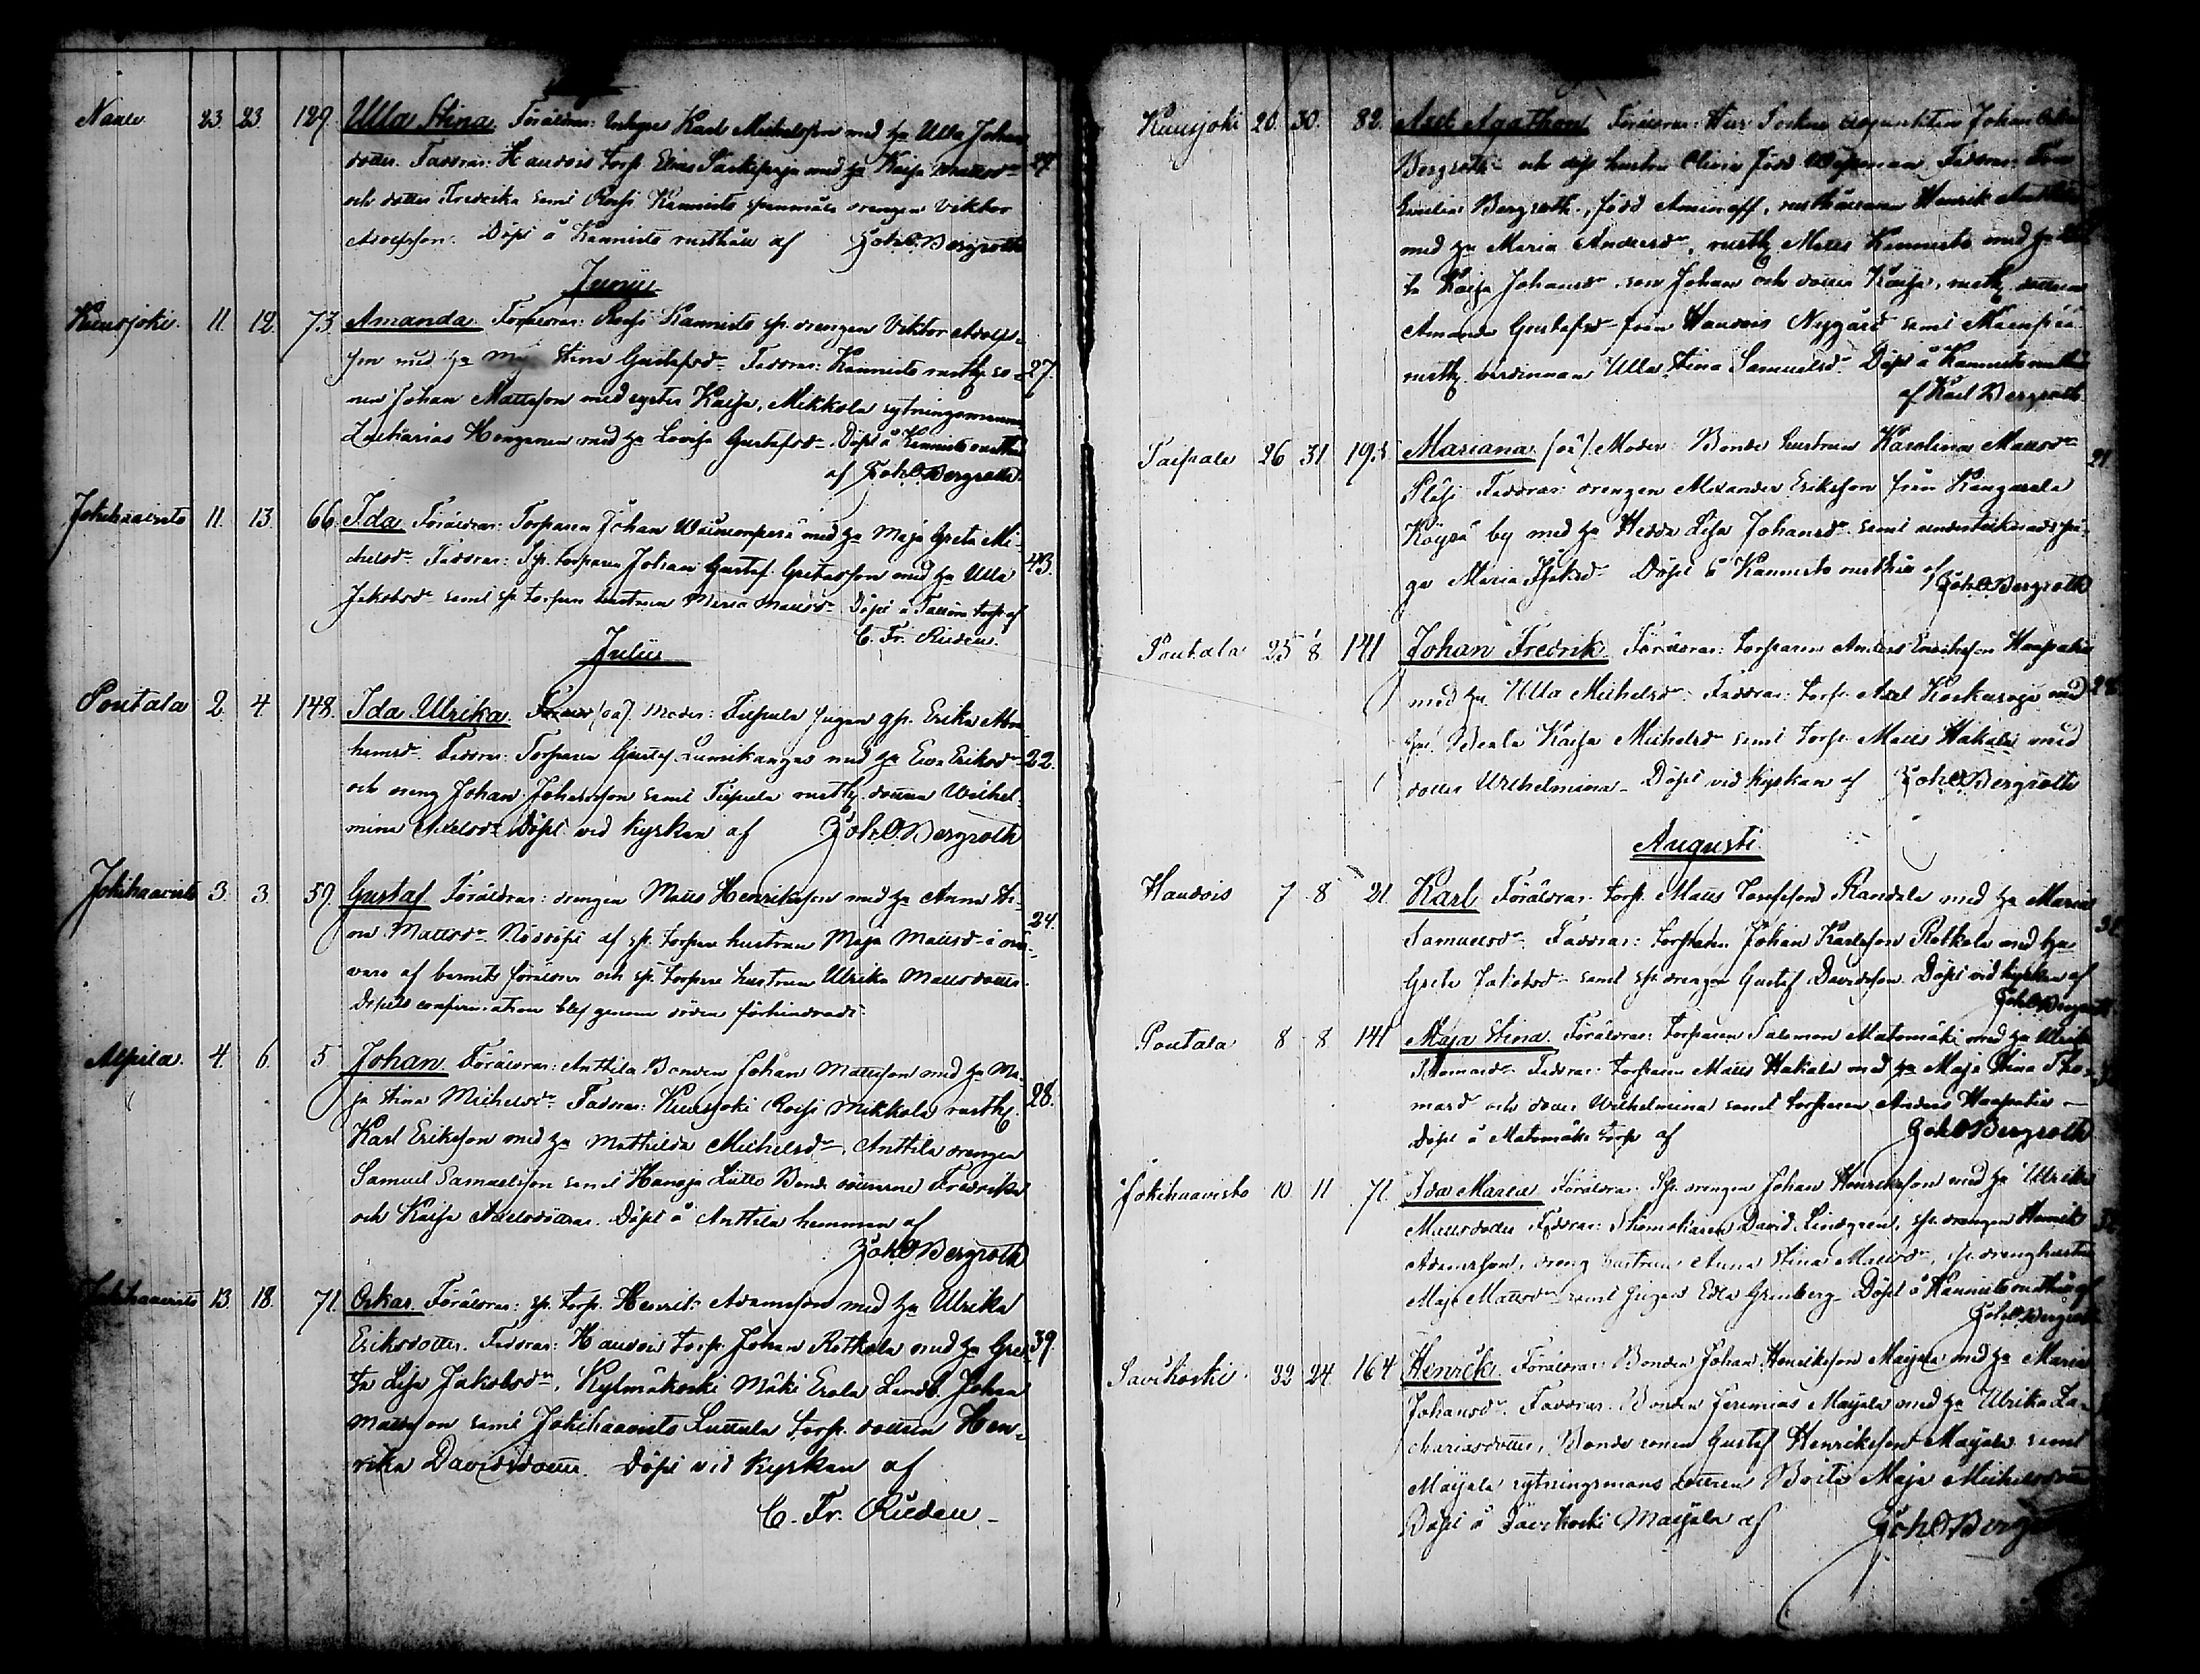 Naale 23. 23. 129. Ulla Stina. Föräldrar: Karl Michelsson med h:a Ulla Johans
dotter. Faddrar: Hauvois torp. Elias med h:a Kaisa Mattsd:r 29.
och dotter Fredrika samt Rosi Kannisto spanmåls drengen Viktor
Adolfsson. Döpt å Kannisto rusthåll af Joh. O. Bergroth
Junii
Kuusjoki. 11. 12. 73. Amanda. Föräldrar: Rosi Kannisto sp. drengen Viktor Adolfs-
son med h:a Stina Gustafsd:r Faddrar: Kannisto rusth. so- 27.
nen Johan Mattsson med syster Kaisa, Mikkola sytningsmannen
Zacharias Hongonen med h:a Lovisa Gustafsd:r Döpt å Kannisto rusthåll
af Joh. O. Bergroth.
Jokihaavisto 11. 13. 66. Ida. Föräldrar: Torparen Johan med h:a Maja Greta Mi-
chelsd:r Faddrar: Sp. torparen Johan Gustaf med h:a Ulla 43.
Jakobsd:r samt sp. torpare hustrun Maria Mattsd:r Döpt å torp af
C. Fr. Rieden.
Julii
Poutala 2. 4. 148. Ida Ulrika. (oä). Moder: pigan Erika Abra-
hamsd:r Faddrar: Torparen Gustaf Lumikangas med h:a Eva Eriksd:r 22.
och dreng Johan Johansson samt rusth. dottren Wilhel-
mina Axelsd:r Döpt vid kyrkan af Joh. O. Bergroth
Jokihaavisto 3. 3. 59. Gustaf. Föräldrar: drengen Matts Henriksson med h:a Anna Sti-
na Mattsd:r Nöddöpt af sp. torpare hustrun Maja Mattsd:r i när- 24.
varo af barnets föräldrar och sp. torpare hustrun Ulrika Mattsdotter.
Dopets confirmation blef genom döden förhindrad.
Alpila. 4. 6. 5. Johan. Föräldrar: Anttila Bonden Johan Mattsson med h:a Ma-
ja Stina Michelsd:r Faddrar: Kuusjoki Rosi Mikkola rusth. 28.
Karl Eriksson med h:a Mathilda Michelsd:r, Anttila drengen
Samuel Samuelsson samt Honaja Bonde döttrarne Fredrika
och Kaisa Axelsdöttrar. Döpt å Anttila hemman af
Joh. O. Bergroth
Jokihaavisto 13. 18. 71. Oskar. Föräldrar: sp. torp. Henrik Adamsson med h:a Ulrika
Eriksdotter. Faddrar: Hauvois torp. Johan Rotkola med h:a Gre- 39.
ta Lisa Jakobsd:r, Kylmäkoski Mäki Erola Landb. Johan
Mattsson samt Jokihaavisto torp. dottren Hen-
rika Davidsdotter. Döpt vid kyrkan af
C. Fr. Rieden
Kuusjoki 20. 30. 82. Axel Agathon. Föräldrar: Herr Sockne Adjunkten Johan
Bergroth och dess hustru Olivia född Faddrar: Fru
Bergroth, född Aminoff, rusthållaren Henrik
med h:a Maria Andersd:r, rusth. Matts Kannisto med h:a
Kaisa Johansd:r, son Johan och dotter Kaisa, rusth. dottren
Amanda Gustafsd:r från Hauvois Nygård samt
rusth. värdinnan Ulla Stina Samuelsd:r. Döpt å Kannisto rusthåll
af Karl Bergroth.
Taipale 26 31 193 Mariana. (oä). Moder: Bonde hustrun Karolina Mattsd:r 21
Faddrar: drengen Alexander Eriksson från Kangasala
by med h:a Hedda Lisa Johansd:r samt
Maria Döpt å Kannisto rusthåll af Joh. O. Bergroth
Poutala 25 1/8 141 Johan Fredrik. Föräldrar: Torparen Anders Haapakia
med h:a Ulla Michelsd:r Faddrar: torp. Axel Koskuoja med
h:u Beata Kaisa Michelsd:r samt torp. Matts Hakala med
dotter Wilhelmina. Döpt vid kyrkan af Joh. O. Bergroth
Augusti.
Hauvois 7 8 21. Karl. Föräldrar: torp. Matts Josefsson Randala med h:a Maria
Samuelsd:r Faddrar: torparen Johan Karlsson Rotkola med h:a
Greta Jakobsd:r samt sp. drengen Gustaf Davidsson. Döpt vid kyrkan af
Joh. O. Bergroth
Poutala 8 8 141 Maja Stina. Föräldrar: Torparen Salomon Matomäki med h:a Ulrika
Thomasd:r Faddrar: torparen Matts Hakala med h:a Maja Stina Tho-
masd:r och dotter Wilhelmina samt torparen Anders Haapakia
Döpt å Matomäki torp af Joh. O. Bergroth
Jokihaavisto 10. 11. 71. Ida Maria. Föräldrar: Sp. drengen Johan Henriksson med h:a Ulrika
Mattsdotter Faddrar: Skomakaren David Lindgren, sp. drengen Henrik
Adamsson, dreng hustrun Anna Stina Mattsd:r, sp. dreng hustrun
Maja Mattsd:r samt pigan Edla Grenberg. Döpt å Kannisto rusthåll af
Joh. O. Bergroth
Savikoski 22 24 164 Henrik. Föräldrar: Bonden Johan Henriksson Maijala med h:a Maria
Johansd:r. Faddrar: Bonden Jeremias Maijala med h:a Ulrika Za-
chariasdotter, Bonde sonen Gustaf Henriksson Maijala samt
Maijala sytningsmans dottren Brita Maja Michelsdotter
Döpt å Savikoski Maijala af Joh. O. Bergroth